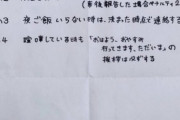 (事後報告した場合ペナルティ2
.3 夜ご飯いらない時は、決まった時点で連絡する
.4 喧嘩している時も「おはよう、おやすみ
行ってきます、ただいま」の
挨拶は必ずする